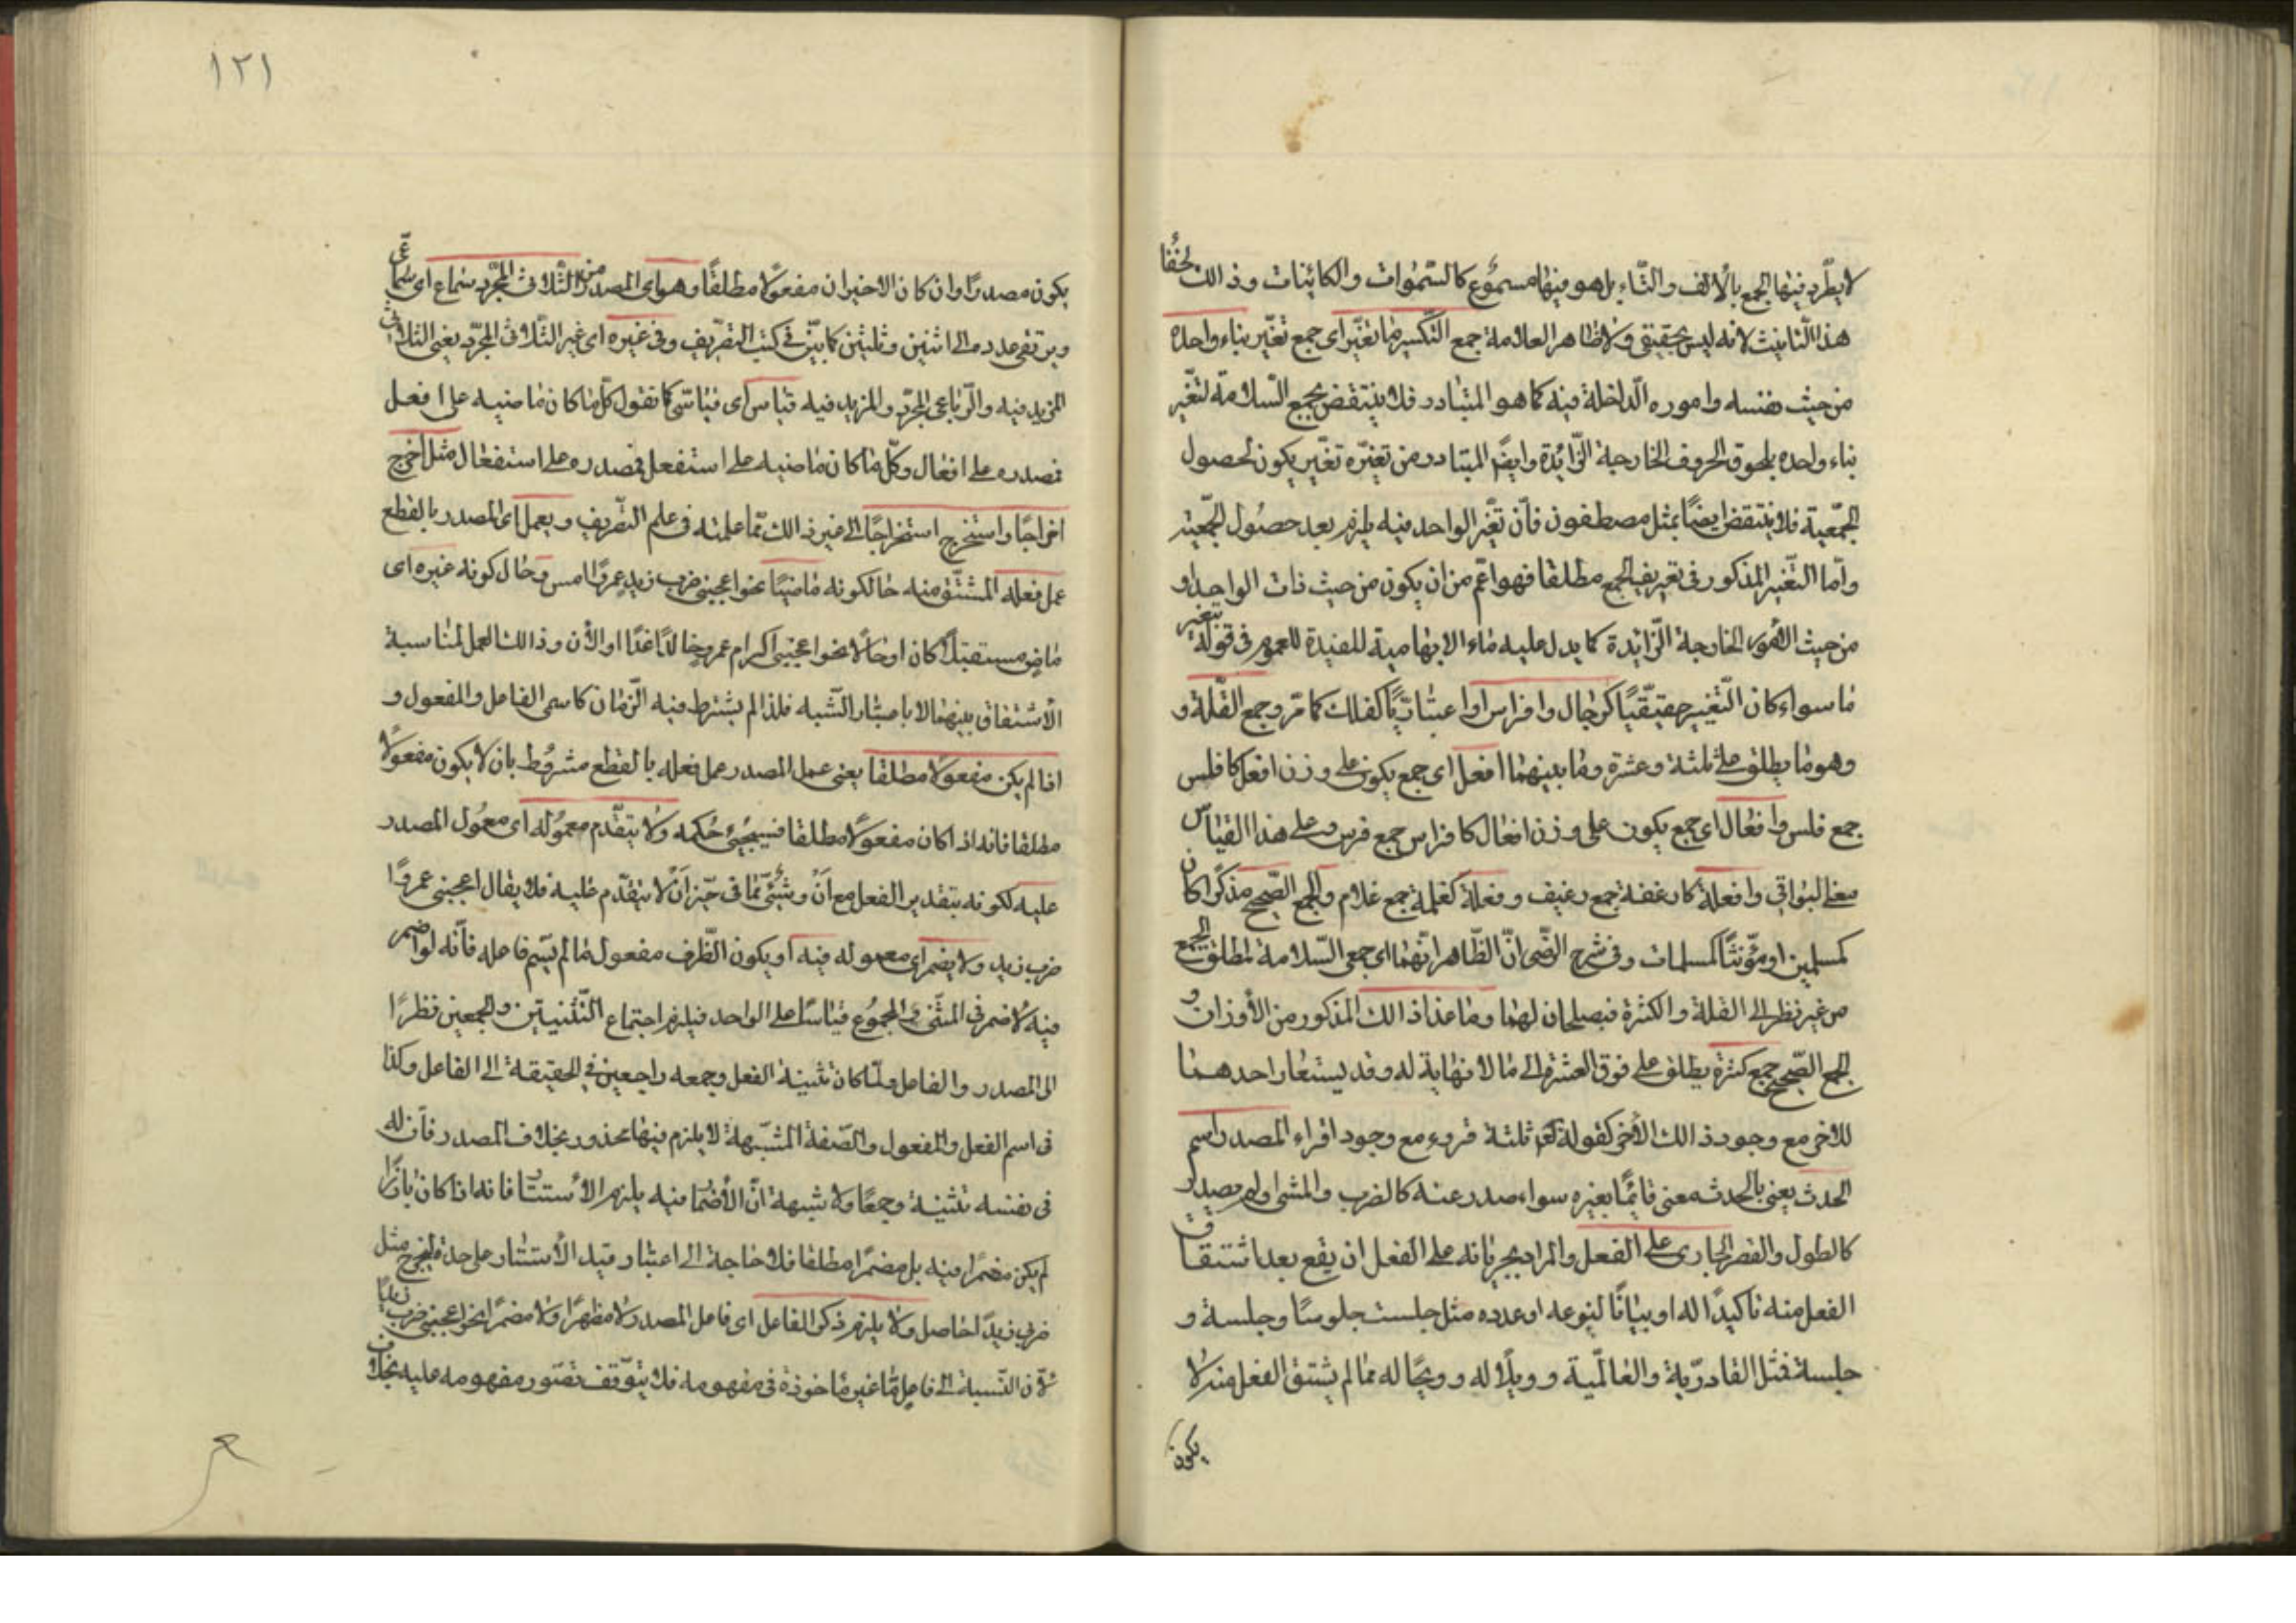 لا يطّرد فيها الجمع بالألف والتّاء بل هو فيها مسموع كالسّموات والكائنات وذالك لخفأ
هذا التّانيث لانه ليس بحقيقي ولا ظاهر العلامة جمع التّكسير ما تغيّر اى جمع تغيّر بناء واحده
من حيث نفسه واموره الدّاخلة فيه كما هو المتبادر فلا ينتقض بجمع السّلامة لتغيّر
بناء واحده بلحوق الحروف الخارجة الزّائدة وايضً المتبادر من تغيّره تغيّر يكون لحصول
الجمّعية فلا ينتقض ايضًا بمثل مصطفون فأنّ تغيّر الواحد فيه يلزم بعد حصول الجمعيّة
وامّا التّغير المذكور فى تعريف الجمع مطلقا فهو اعّم من ان يكون من حيث ذات الواحد او
من حيث الأمور الخارجة الزّائدة كما يدل عليه ماء الابهامية المفيدة للعموم فى قوله بتغير
ما سواء كان التّغيير حقيقّيًا كرجال وافراس او اعتباريًّا كفلك كما مرّ وجمع القّلة و
وهو ما يطلق على ثلثة وعشرة وما بينهما افعل اى جمع يكون على وزن افعل كافلس
جمع فلس وافعال اى جمع يكون على وزن افعال كافراس جمع فرس وعلى هذا القياس
معنى البواقى وافعلة كارغفة جمع رغيف وفعلة كغلمة جمع غلام والجمع الصّحيح مذكّرًا كان
كمسلمين او مؤّنثًا كمسلمات وفى شرح الرّضى انّ الظّاهر انّهما اى جمعى السّلامة لمطلق الجمع
من غير نظر الى القلة والكثرة فيصلحان لهما وما عدا ذالك المذكور من الأوزان و
الجمع الصّحيح جمع كثرة يطلق على فوق العشرة الى ما لا نهاية له وقد يستعار احدهما
للاخر مع وجود ذالك الأخر كقوله تعم ثلثة قروء مع وجود اقراء المصدر اسم
الحدث يعنى بالحدث معنى قائمًا بغيره سواء صدر عنه كالضرب والمشى او لم يصدر
كالطول والقصر الجارى على الفعل والمراد بجريانه على الفعل ان يقع بعد اشتقاق
الفعل منه تأكيدًا له او بيانًا لنوعه او عدده مثل جلست جلوسًا وجلسة و
جلسة فمثل القادريّة والعالميّة وويلًا له وويحًا له مما لم يشتق الفعل منه لا
يكون
١٢١
يكون مصدرًا وان كان الاخيران مفعولا مطلقًا وهو اى المصدر من الثّلاثى المجرّد سماع اى سماعى
ويرتقى عدده الى اثنين وثلثين كما بيّن فى كتب التصريف وفى غيره اى غير الثّلاثى المجرّد يعنى الثلاثى
المزيد فيه والرّباعى المجرّد والمزيد فيه قياس اى قياسّى كما تقول كلّ ما كان ماضيه على افعل
فمصدره على افعال وكلّ ما كان ماضيه على استفعل فمصدره على استفعال مثل اخرج
اخراجًا واستخرج استخراجًا الى غير ذالك ممّا علمته فى علم التّصريف ويعمل اى المصدر بالقطع
عمل فعله المشتّق منه حالكونه ماضيًا نحو اعجبنى ضرب زيد عمروًا امس وحال كونه غيره اى
ماضٍ مستقبلًا كان او حالًا نحو اعجبنى اكرام عمرو خالدًا غدًا او الأن وذالك العمل لمناسبة
الأشتقاق بينهما لا باعتبار الشّبه فلذا لم يشترط فيه الزّمان كاسمى الفاعل والمفعول و
اذا لم يكن مفعولا مطلقا يعنى عمل المصدر عمل فعله بالقطع مشروط بان لا يكون مفعولًا
مطلقا فانه اذا كان مفعولًا مطلقا فسيجيئ حكمه ولا يتقّدم معموله اى معمول المصدر
عليه لكونه بتقدير الفعل مع أنْ وشيئ ممّا فى حيّز أنْ لا يتقدّم عليه فلا يقال اعجبنى عمروًا
ضرب زيد ولا يضمر اى معموله فيه او يكون الظّرف مفعول ما لم يسّم فاعله فأنّه لو اضمر
فيه لأضمر فى المثنّى والمجموع قياسًا على الواحد فيلزم اجتماع التّثنيتين والجمعين نظرًا
الى المصدر والفاعل ولمّا كان تثنية الفعل وجمعه راجعين فى الحقيقة الى الفاعل وكذا
فى اسم الفعل والمفعول والصّفة المشبّهة لا يلزم فيها محذور بخلاف المصدر فأن له
فى نفسه تثنية وجمعًا ولا شبهة انّ الأضمار فيه يلزم الأستتار فانه اذا كان بارزًا
لم يكن مضمرًا فيه بل مضمرًا مطلقا فلا حاجة الى اعتبار قيد الأستتار على حدة ليخرج مثل
ضربى زيدًا حاصل ولا يلزم ذكر الفاعل اى فاعل المصدر لا مظهرًا ولا مضمرًا نحو اعجبنى ضرب زيدًا
لأن النّسبة الى فاعل مّا غير مأخوذة فى مفهومه فلا يتوّقف تصّور مفهومه عليه بخلاف